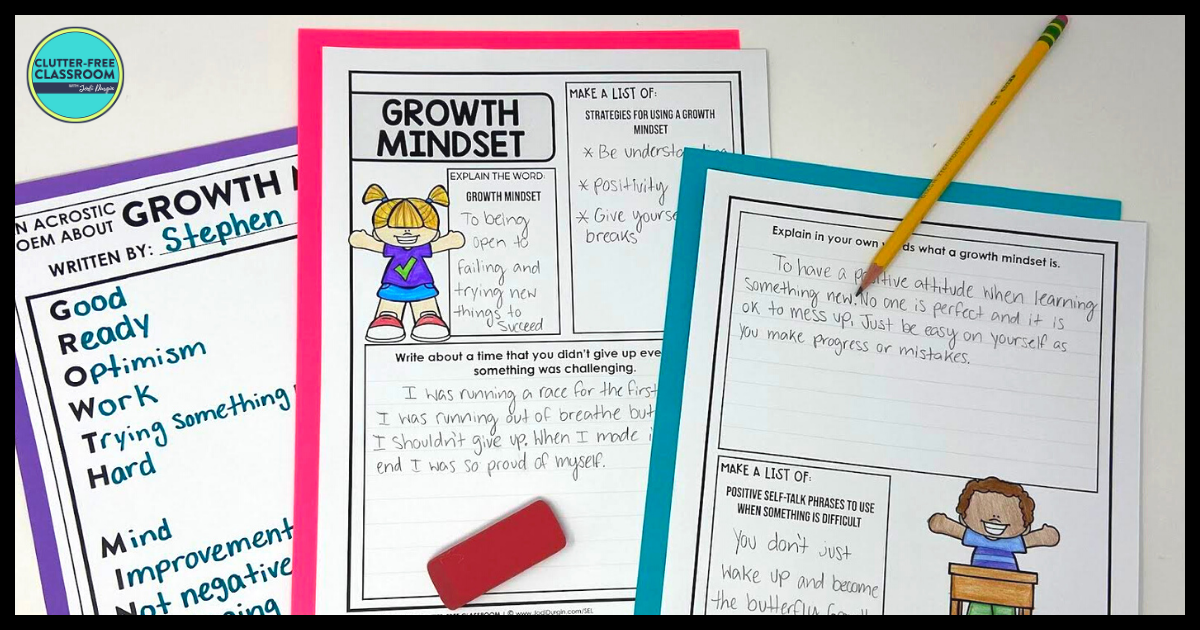 CLUTTER-FREE
CLASSROOM
WITH Jodi Durgin
N ACROSTIC
OEM ABOUT
GROWTH
WRITTEN BY: Stephen
Good
Ready
Optimism
Work
Trying something
Hard
Mind
Improvement
Not negative
GROWTH
MINDSET
EXPLAIN THE WORD:
GROWTH MINDSET
To being
open to
failing and
trying new
things to
succeed
MAKE A LIST OF:
STRATEGIES FOR USING A GROWTH
MINDSET
* Be understa
* positivity
* Give yourse
breaks
Write about a time that you didn't give up eve
something was challenging.
I was running a race for the first
I was running out of breathe but
I shouldn't give up. When I made i
end I was so proud of myself.
CLASSROOM | © www.JodiDurgin.com/SEL
Explain in your own words what a growth mindset is.
To have a positive attitude when learning
something new. No one is perfect and it is
ok to mess up. Just be easy on yourself as
you make progress or mistakes.
MAKE A LIST OF:
POSITIVE SELF-TALK PHRASES TO USE
WHEN SOMETHING IS DIFFICULT
You don't just
wake up and become
the butterfly